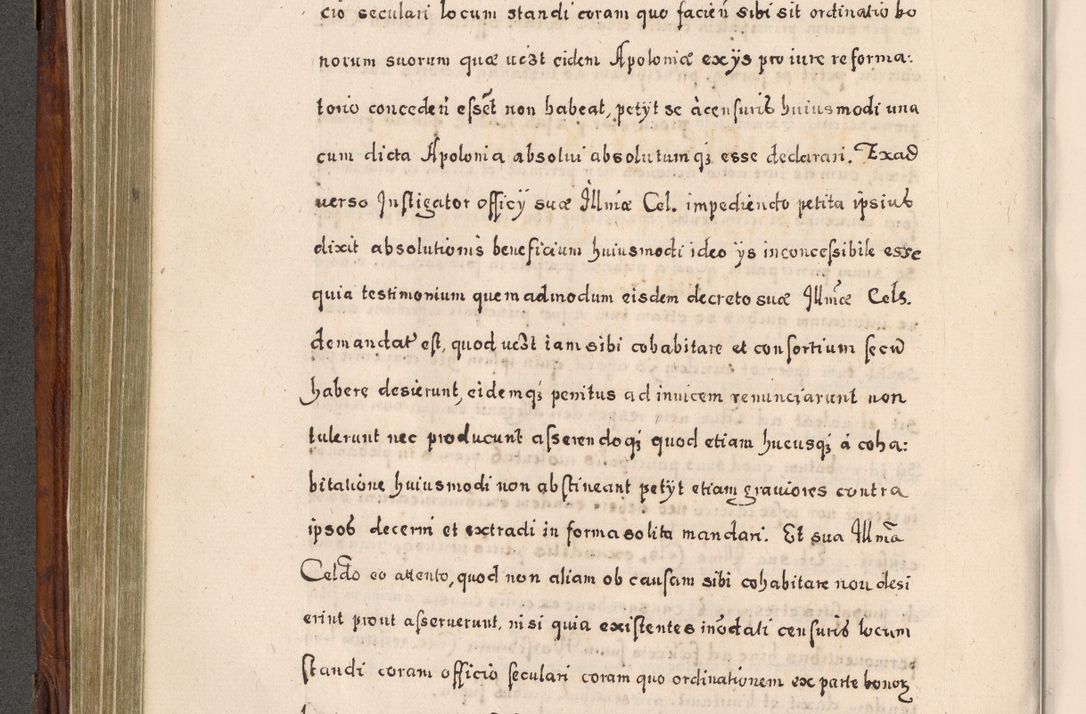 cio seculari locum standi coram quo facieñ sibi sit ordinatio bo
norum suorum quæ uc̃st eidem Apoloniæ ex ys pro iure reforma:
torio conceden̄ essẽt non habeat, petÿt se à censuris huiusmodi una
cum dicta Apolonia absolui absolutumq; esse declarari. Ex ad
uerso Instigator officÿ suæ Illmæ Cel. impediendo petita ipsius
dixit absolutionis beneficium huiusmodi ideo ÿs inconcessibile esse
quia testimonium quemadmodum eisdem decreto suæ Illmæ Cels.
demandat' est, quod uc̃st iam sibi cohabitare et consortium secũ
habere desierunt, eidemq; penitus ad inuicem renunciarunt non
tulerunt nec producunt asserendoq; quod etiam hucusq; á coha:
bitatione huiusmodi non abstineant petÿt etiam grauiores contra
ipsos decerni et extradi in forma solita mandari. Et sua Illmã
Celdo eo attento, quod non aliam ob causam sibi cohabitare non desi
erint prout asseruerunt, nisi quia existentes inodati censuris locum
standi coram officio seculari coram quo ordinationem ex parte bonoꝝ